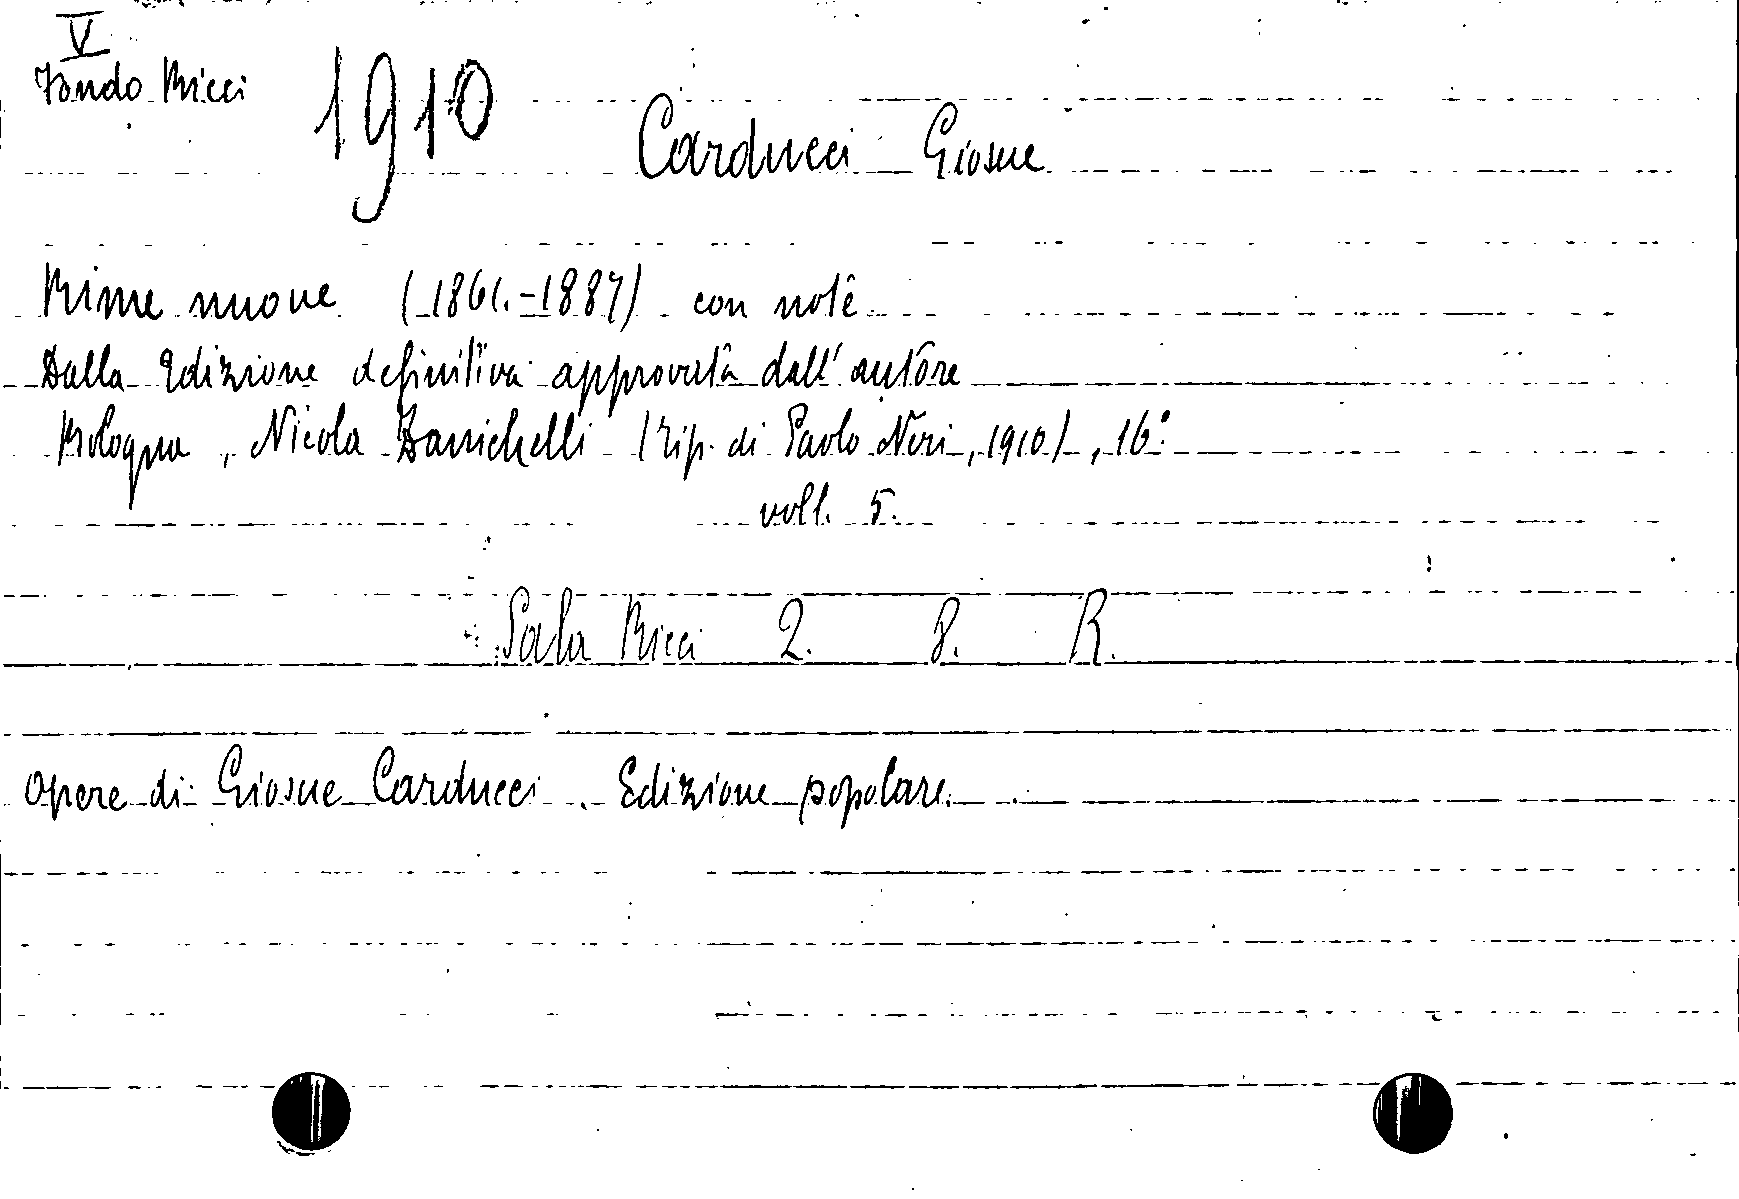 V
Fondo Ricci
1910
Carducci Giosue
Rime nuove (1861.-1887) con note
Dalla Edizione definitiva approvata dall'autore
Bologna, Nicola Zanichelli (Tip. di Paolo Neri, 1910), 16°
voll. 5.
Sala Ricci 2. 8. R.
Opere di Giosue Carducci. Edizione popolare.